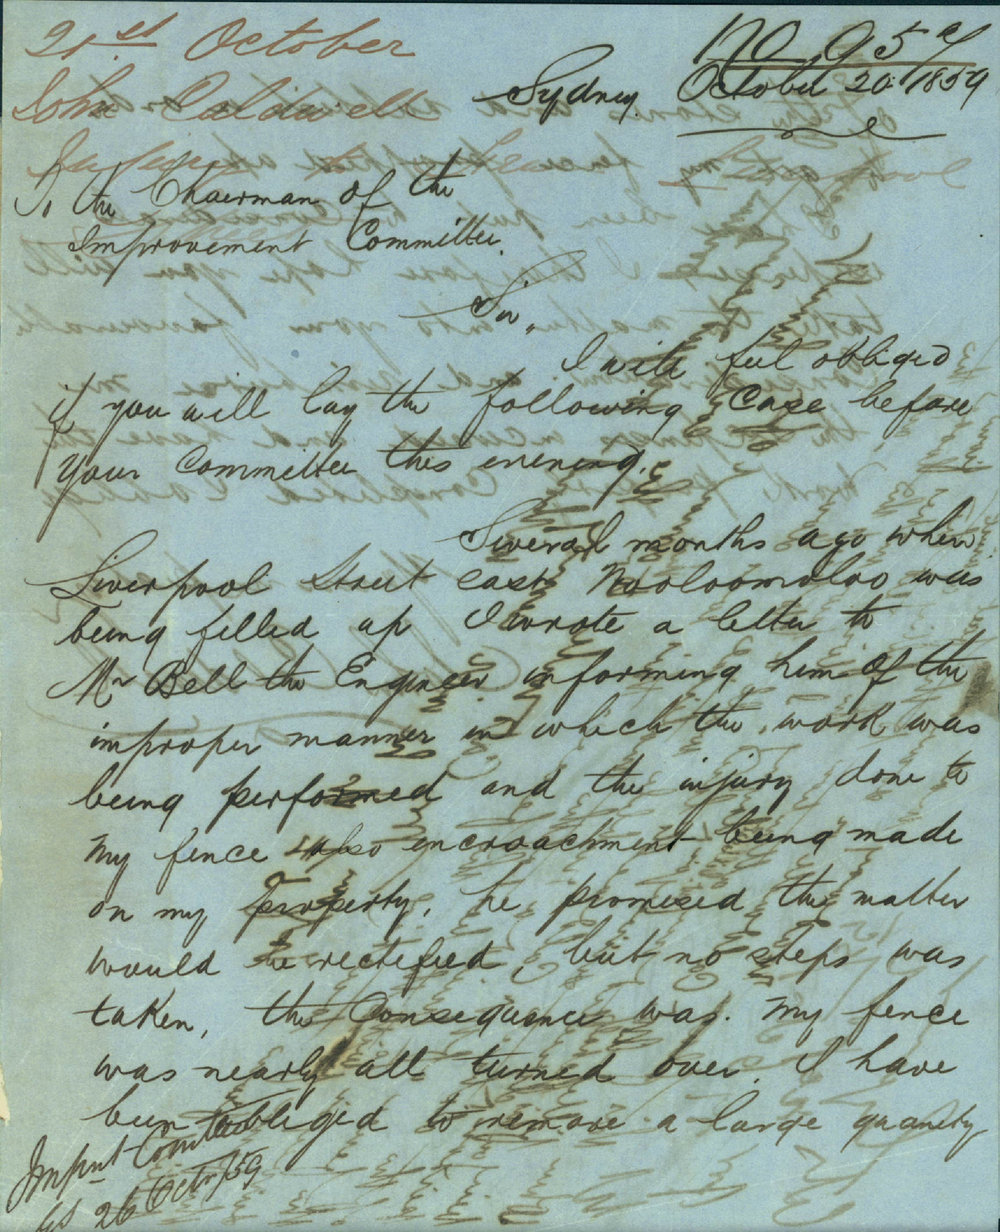 21st October
John Caldwell
No 957
Sydney October 20. 1859
To the Chairman of the
Improvement Committee.
Sir,
I will feel obliged
if you will lay the following Case before
your Committee this evening.
Several months ago when
Liverpool Street East Wooloomoloo was
being filled up I wrote a letter to
Mr Bell the Engineer informing him of the
improper manner in which the work was
being performed and the injury done to
my fence also encroachment being made
on my Property, he promised the matter
would be rectified, but no steps was
taken, the Consequence was. my fence
was nearly all turned over. I have
been obliged to remove a large quantity
Impnt Comtee
26 Octr/59